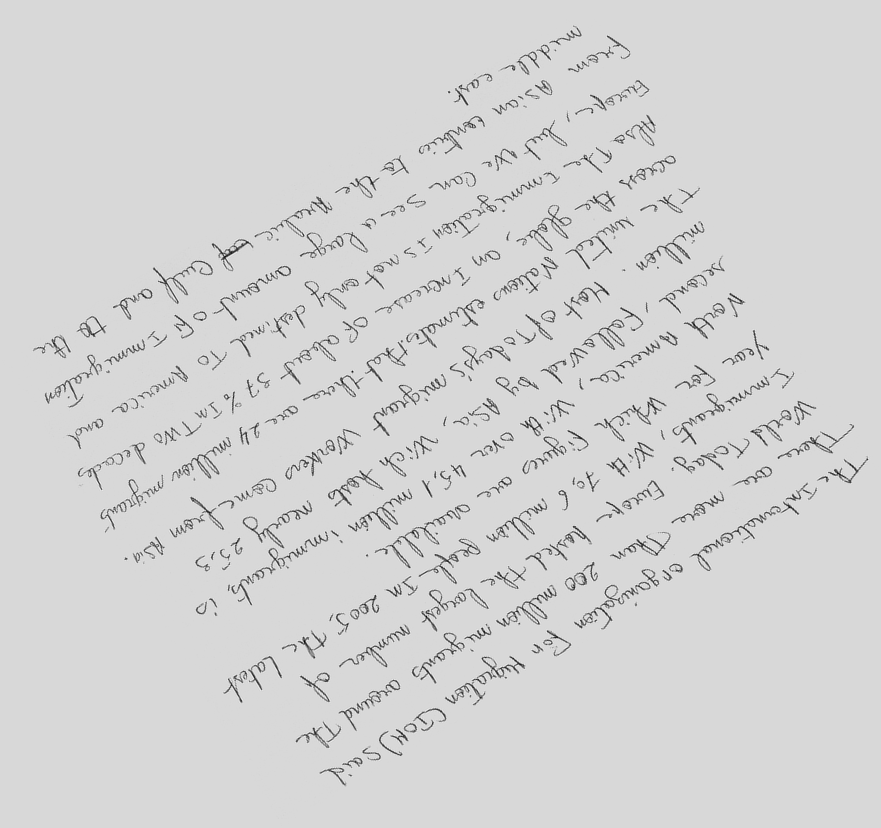 The International organization For Migration (IOM) said
There are more Than 200 million migrants around The
World Today. Europe hosted The largest number of
Immigrants, With 70,6 million people In 2005, The Latest
Year For Which Figures are available.
North America, With over 45,1 million immigrants, is
second, Followed by Asia, Wich hosts nearly 25,3
million. Most of Today's migrant Workers Come from Asia.
The united Nations estimates that there are 24 million migrants
across the globe, an Increase Of about 37% In Two decades
Also The Immigration Is not only destined To America and
Europe, but We Can See a large amount Of Immigration
From Asian contries to the Arabic Gulf and to the
middle east.